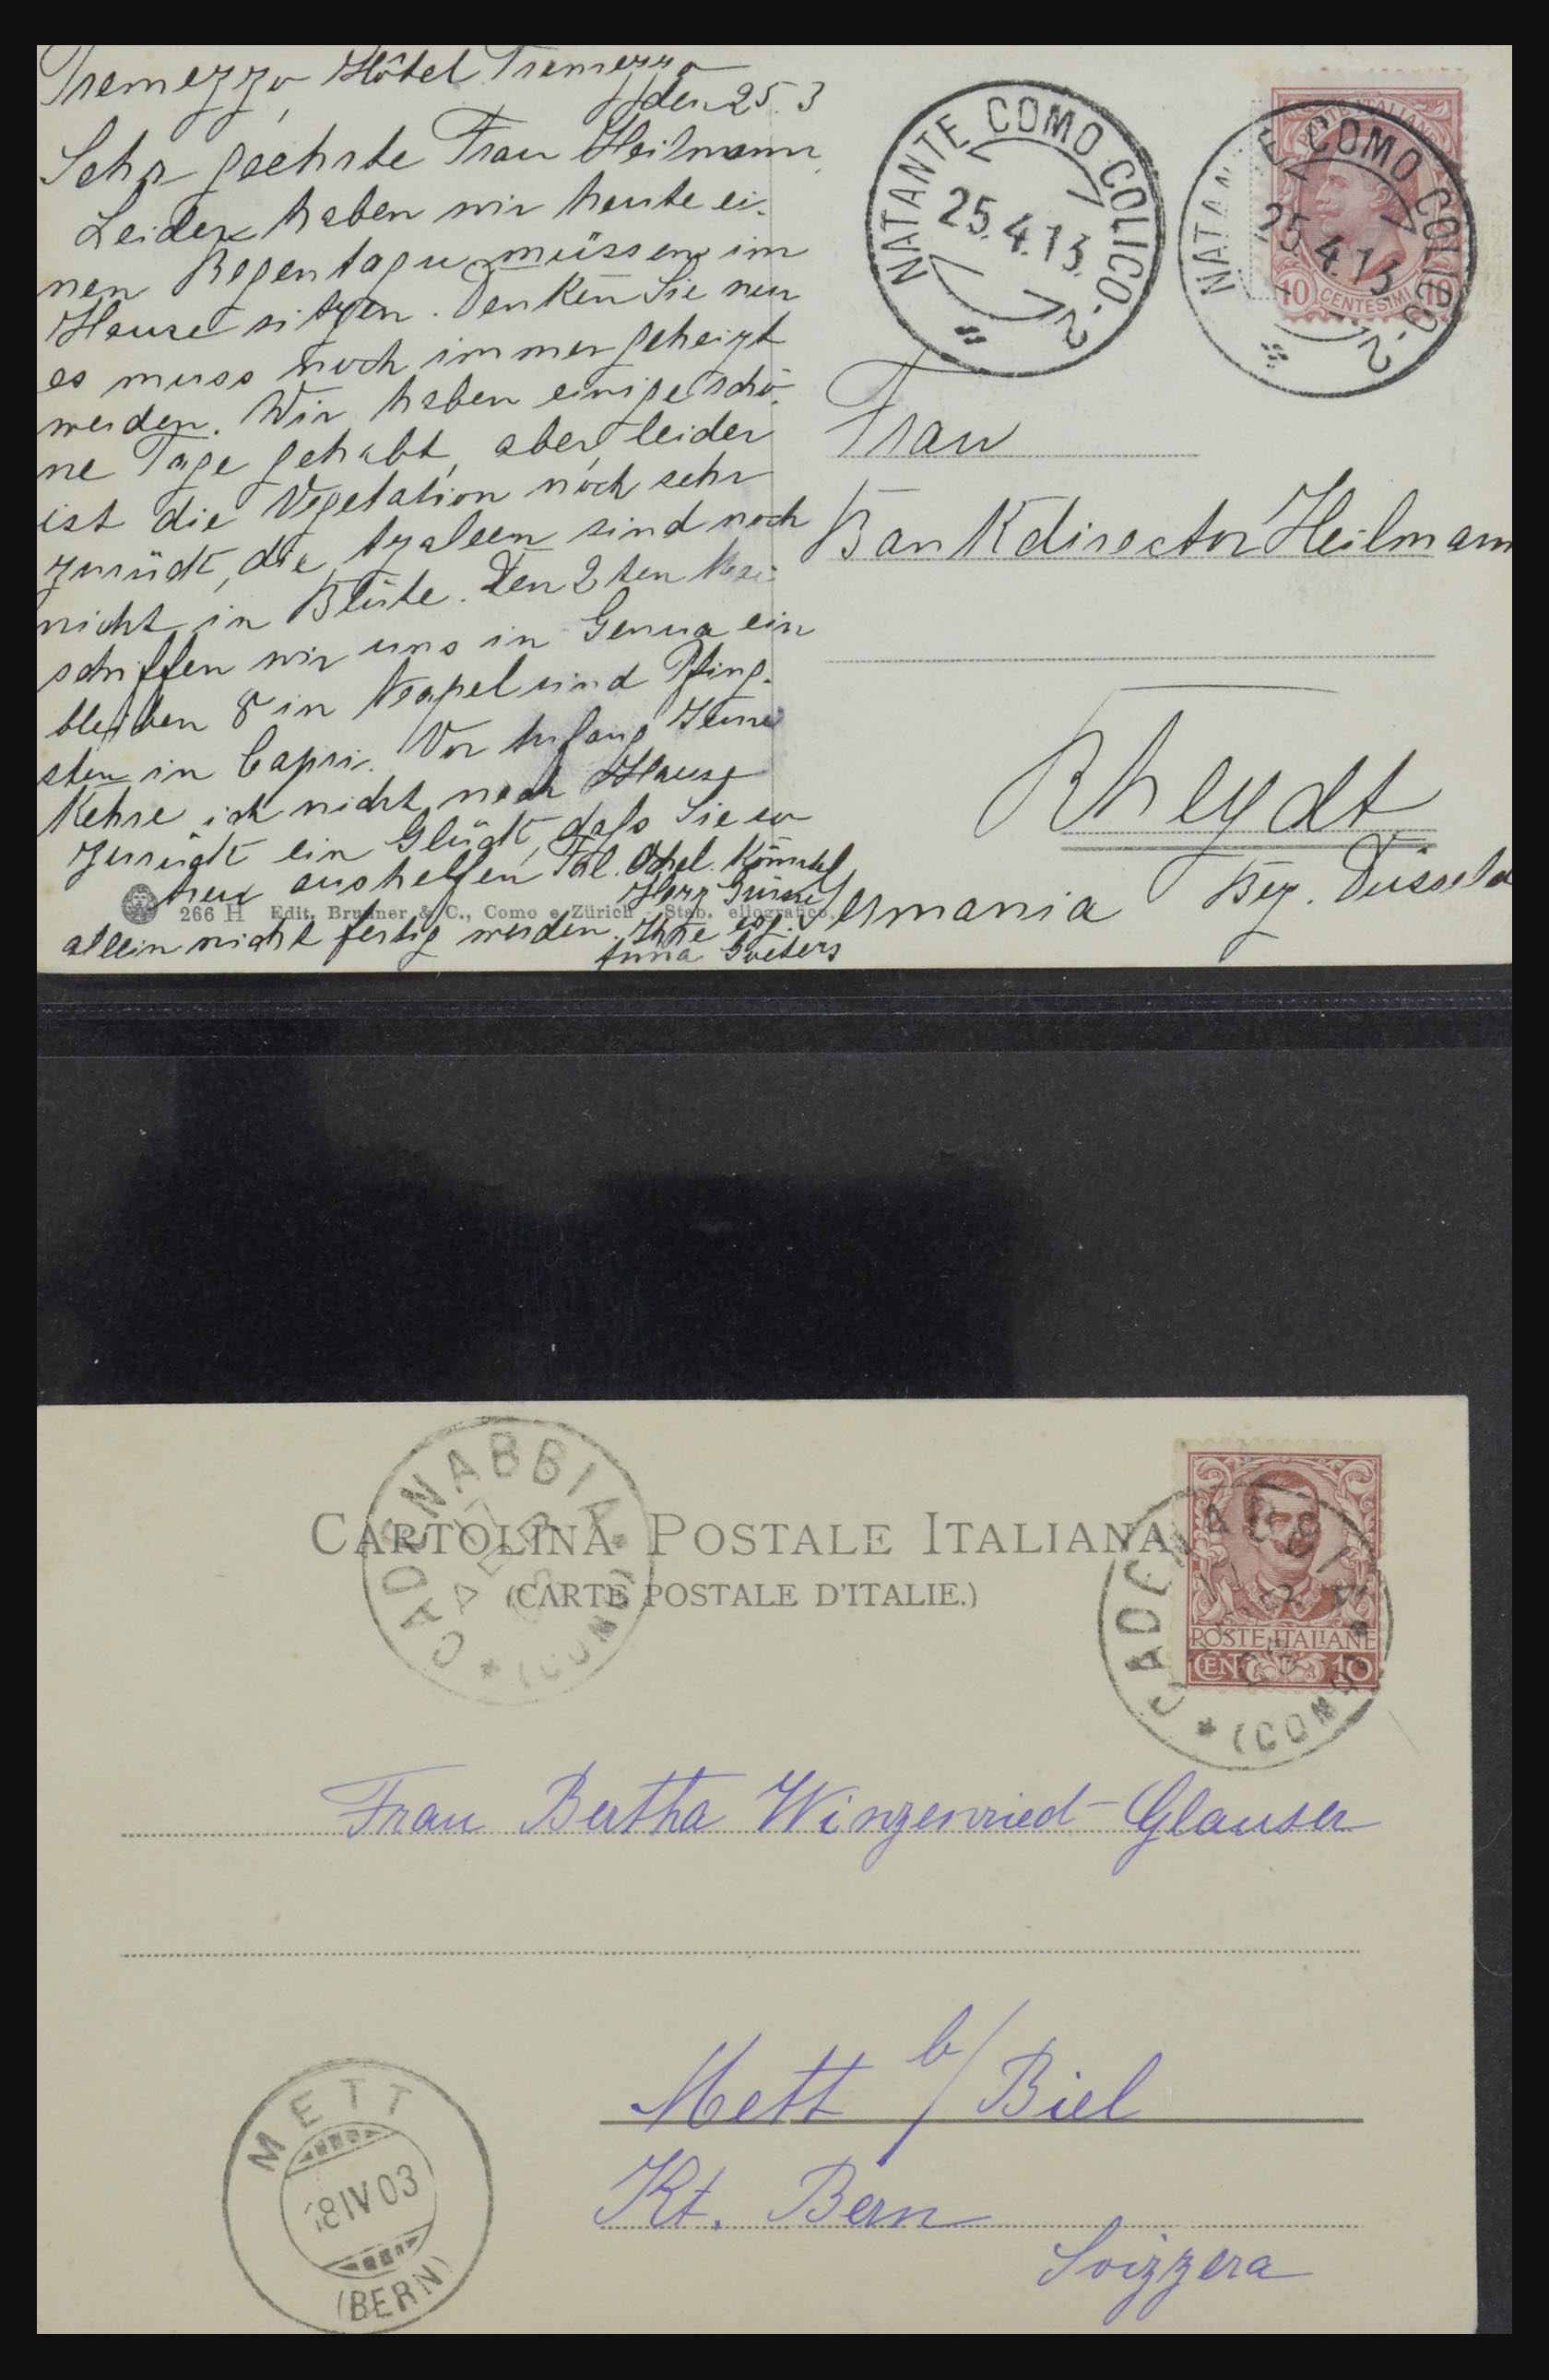 Tremezzo, Hôtel Tremezzo
den 25. 3
Sehr geehrte Frau Heilmann,
Leider haben wir heute ei-
nen Regentag u. müssen im
Hause sitzen. Denken Sie nur
es muss noch immer geheizt
werden. Wir haben einige schö-
ne Tage gehabt, aber leider
ist die Vegetation noch sehr
zurück, die Azaleen sind noch
nicht in Blüte. Den 2ten Mai
schiffen wir uns in Genua ein
bleiben 8 in Neapel und Pfing-
sten in Capri. Vor Anfang Juni
Kehre ich nicht nach Hause
zurück ein Glück, dass Sie so
neu aushelfen Frl.
Herr
allein nicht fertig werden. Ihre erg.
Anna Goeters
266 H Edit. Brunner & C., Como e Zürich - Stab. eliografico.
NATANTE COMO COLICO-2
25.4.13.
NATANTE COMO COLICO-2
25.4.13
POSTE ITALIANE
10 CENTESIMI 10
Frau
Bankdirector Heilmann
Rheydt
Bez. Düsseld
Germania
CADENABBIA
(COMO)
CARTOLINA POSTALE ITALIANA
(CARTE POSTALE D'ITALIE.)
CADENABBIA
(COMO)
POSTE ITALIANE
CEN. 10
Frau Bertha Winzenried-Glauser
Mett b/Biel
Kt. Bern
Svizzera
METT
18 IV 03
(BERN)